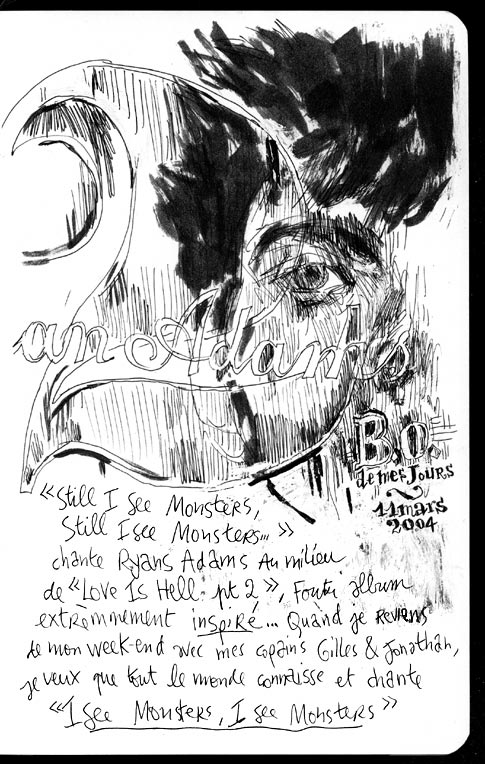 2
an Adams
B.O.
de mes Jours
11 mars
2004
«Still I See Monsters,
Still I See Monsters... »
chante Ryans Adams au milieu
de «Love Is Hell pt 2», Foutu album
extrèmement inspiré... Quand je Reviens
de mon week-end avec mes copains Gilles & Jonathan,
je veux que tout le monde connaisse et chante
«I See Monsters, I See Monsters»